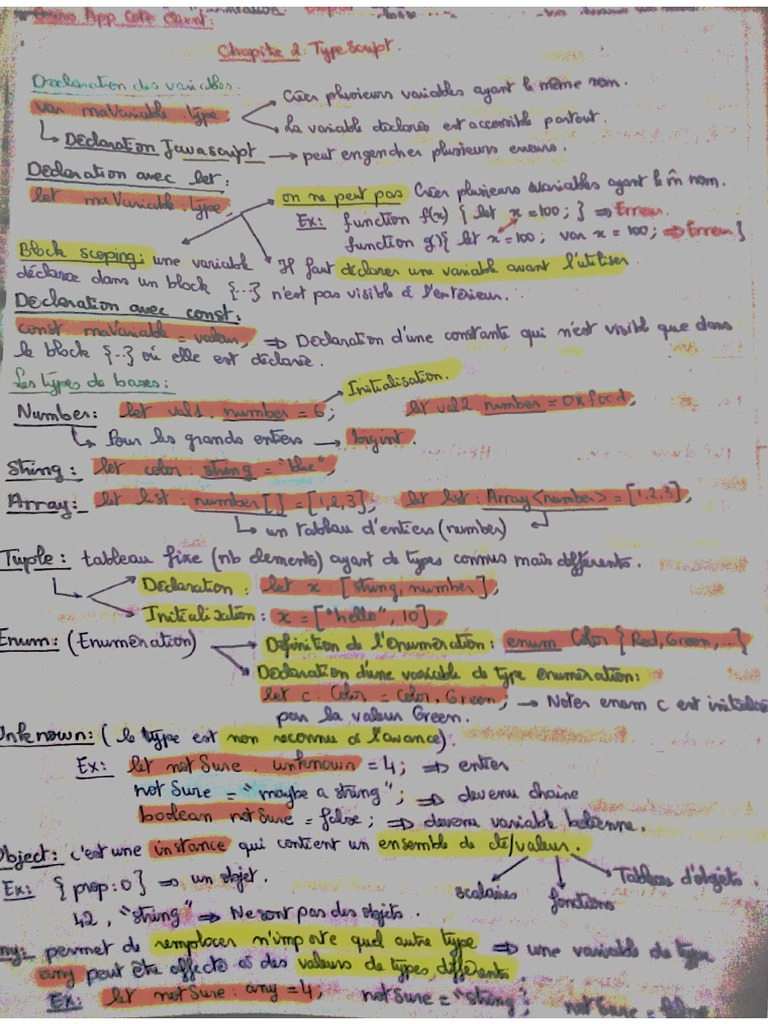 App Coté Client:
Chapitre 2: TypeScript.
Déclaration des variables.
var maVariable: type
Créer plusieurs variables ayant le même nom.
La variable déclarée est accessible partout.
Déclaration Javascript → peut engencher plusieurs erreurs.
Déclaration avec let:
let maVariable: type;
on ne peut pas Créer plusieurs variables ayant le m̂ nom.
Ex: function f(x) { let x = 100; } ⇒ Erreur.
function g(){ let x = 100; var x = 100; ⇒ Erreur }
Block scoping: une variable
Il faut déclarer une variable avant l'utiliser
déclarée dans un block {...} n'est pas visible à l'extérieur.
Déclaration avec const:
const maVariable = valeur; ⇒ Déclaration d'une constante qui n'est visible que dans
le block {...} où elle est déclarée.
Les types de bases:
Initialisation.
Number: let val1: number = 6; let val2 number = 0xf00d;
↳ Pour les grands entiers → bigint.
String: let color: string = "blue";
Array: let list: number[] = [1,2,3]; let list: Array<number> = [1,2,3];
↳ un tableau d'entiers (number)
Tuple: tableau fixe (nb elements) ayant de types connus mais différents.
Déclaration: let x: [string, number];
Initialization: x = ["hello", 10];
Enum: (Enumération) Définition de l'enumération: enum Color {Red, Green, ...}
Déclaration d'une variable de type enumération:
let c: Color = Color.Green; → Notre enum c est initialisé
par la valeur Green.
Unknown: (le type est non reconnu à l'avance).
Ex: let notSure: unknown = 4; ⇒ entier
notSure = "maybe a string"; ⇒ devenu chaine
boolean notSure = false; ⇒ devenu variable booléenne.
Object: c'est une instance qui contient un ensemble de clé/valeur.
Ex: {prop:0} ⇒ un objet.
scalaires fonctions Tableau d'objets.
42, "string" ⇒ Ne sont pas des objets.
Any: permet de remplacer n'importe quel autre type ⇒ une variable de type
any peut être affecté à des valeurs de types différents.
Ex: let notSure: any = 4; notSure = "string"; notSure = false